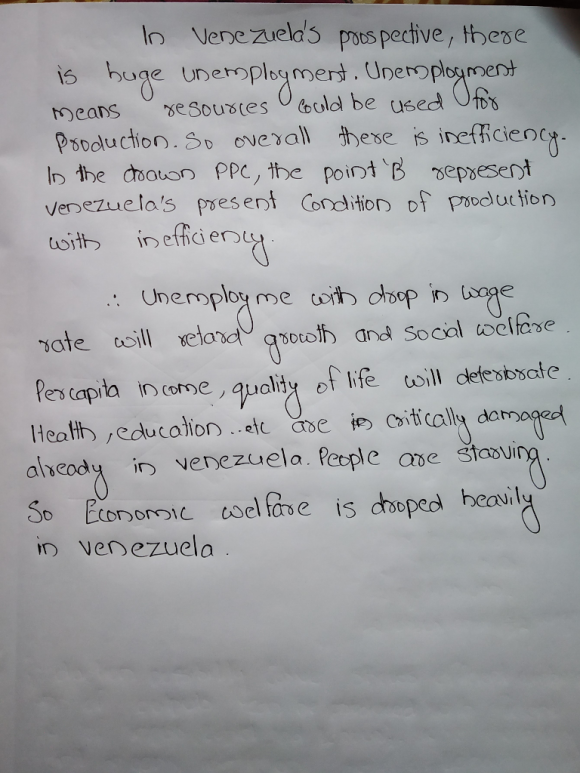 In Venezuela's prospective, there
is huge unemployment. Unemployment
means resources could be used for
Production. So overall there is inefficiency.
In the drawn PPC, the point 'B' represent
Venezuela's present Condition of production
with inefficiency.
∴ Unemployme with drop in wage
rate will retard growth and social welfare.
Percapita income, quality of life will deteriorate.
Health, education..etc are critically damaged
already in venezuela. People are starving.
So Economic welfare is droped heavily
in venezuela.